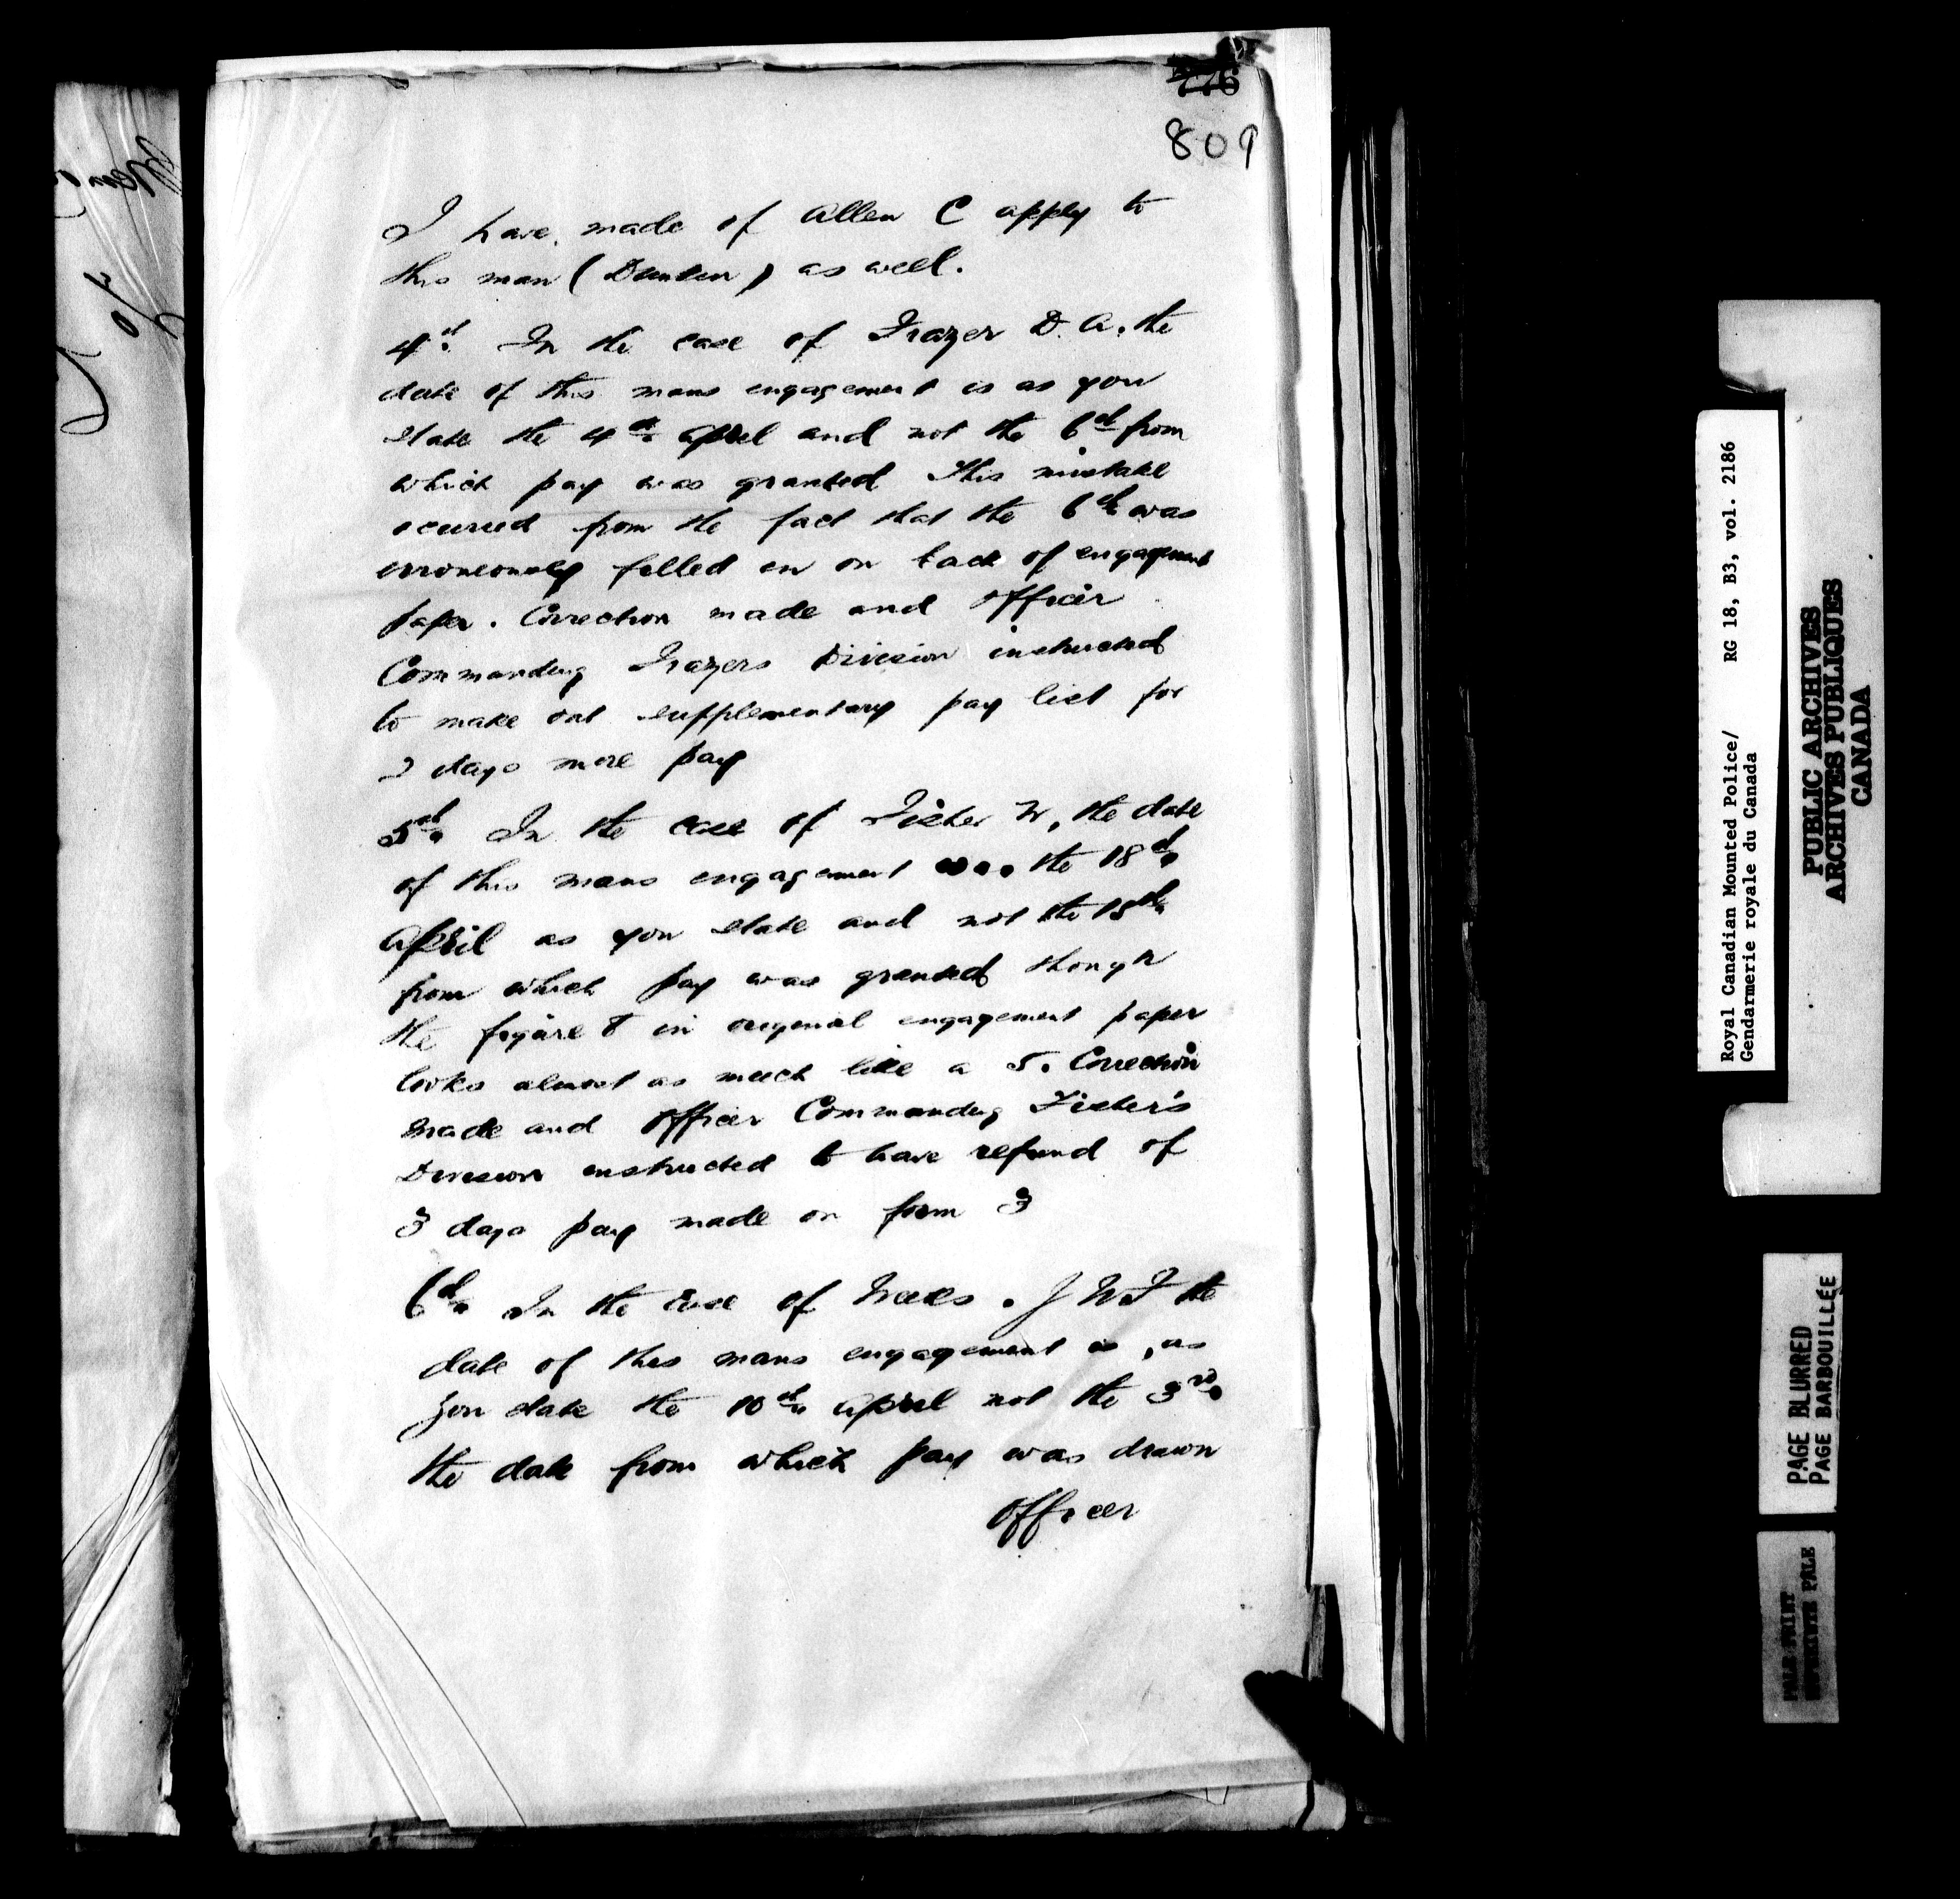 776
809
I have made of Allen C apply to
this man (Dunken) as well.
4th. In the case of Frazer D. A. the
date of this mans engagement is as you
state the 4th April and not the 6th from
which pay was granted This mistake
ocurred from the fact that the 6th was
erroneously filled in on back of engagement
paper. Correction made and Officer
Commanding Frazers Division instructed
to make out supplementary pay list for
2 days more pay
5th. In the case of Fisher W, the date
of this mans engagement was the 18th
April as you state and not the 15th
from which pay was granted though
the figure 8 in original engagement paper
looks almost as much like a 5. Correction
made and Officer Commanding Fisher's
Division instructed to have refund of
3 days pay made on form 3
6th. In the case of . J W F the
date of this mans engagement is, as
you state the 10th April not the 3rd
the date from which pay was drawn
Officer
Royal Canadian Mounted Police/ RG 18, B3, vol. 2186
Gendarmerie royale du Canada
PUBLIC ARCHIVES
ARCHIVES PUBLIQUES
CANADA
PAGE BLURRED
PAGE BARBOUILLÉE
PALE PRINT
EPREUVE PALE